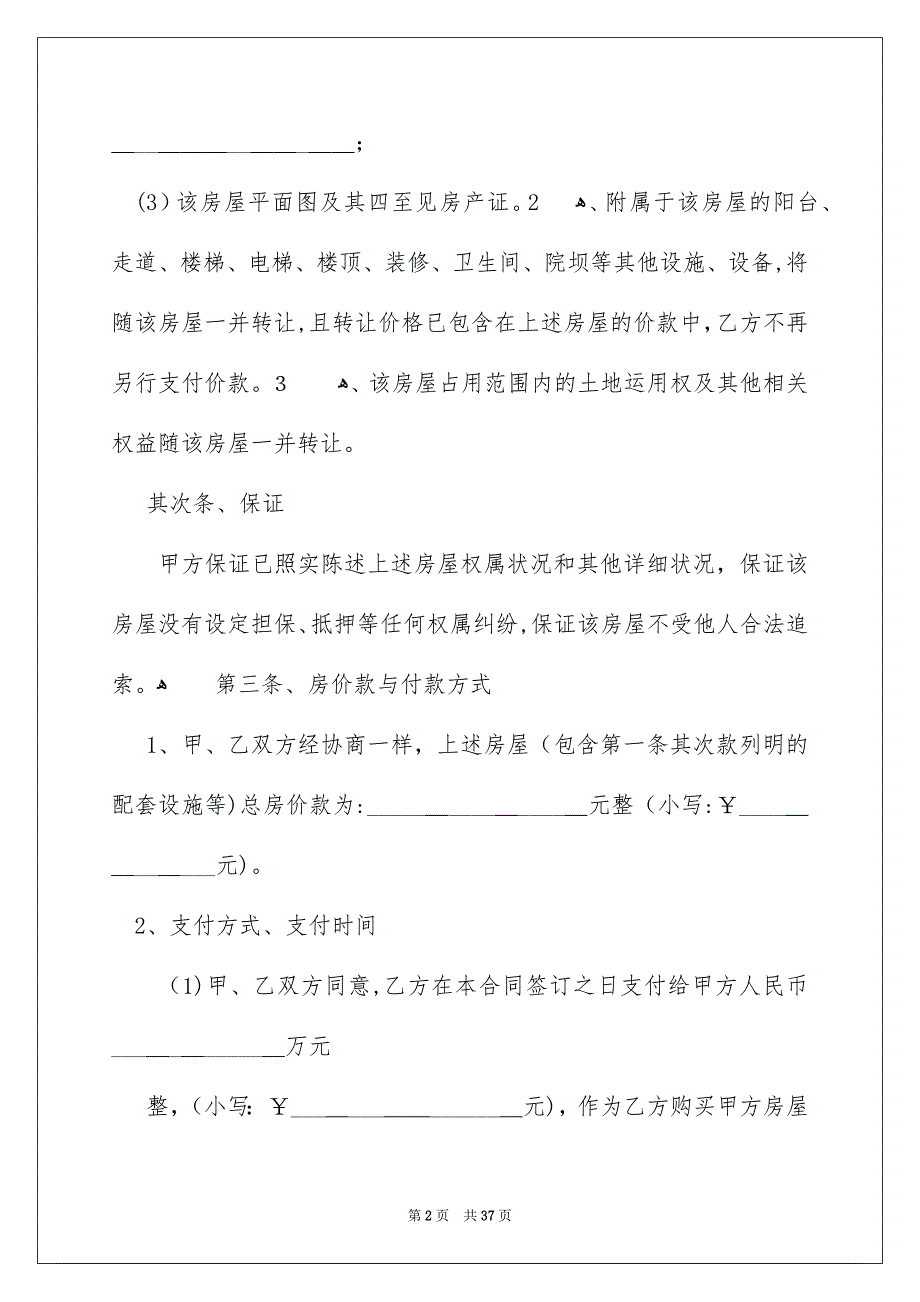 _____________________;
(3)该房屋平面图及其四至见房产证。2 ﻫ、附属于该房屋的阳台、
走道、楼梯、电梯、楼顶、装修、卫生间、院坝等其他设施、设备,将
随该房屋一并转让,且转让价格已包含在上述房屋的价款中,乙方不再
另行支付价款。3 ﻫ、该房屋占用范围内的土地运用权及其他相关
权益随该房屋一并转让。
其次条、保证
甲方保证已照实陈述上述房屋权属状况和其他详细状况，保证该
房屋没有设定担保、抵押等任何权属纠纷,保证该房屋不受他人合法追
索。ﻫ 第三条、房价款与付款方式
1、甲、乙双方经协商一样，上述房屋（包含第一条其次款列明的
配套设施等)总房价款为:___________________元整（小写:￥______
_________元)。
2、支付方式、支付时间
（1)甲、乙双方同意,乙方在本合同签订之日支付给甲方人民币
_______________万元
整，（小写: ￥____________________元)，作为乙方购买甲方房屋
第 2 页 共 37 页